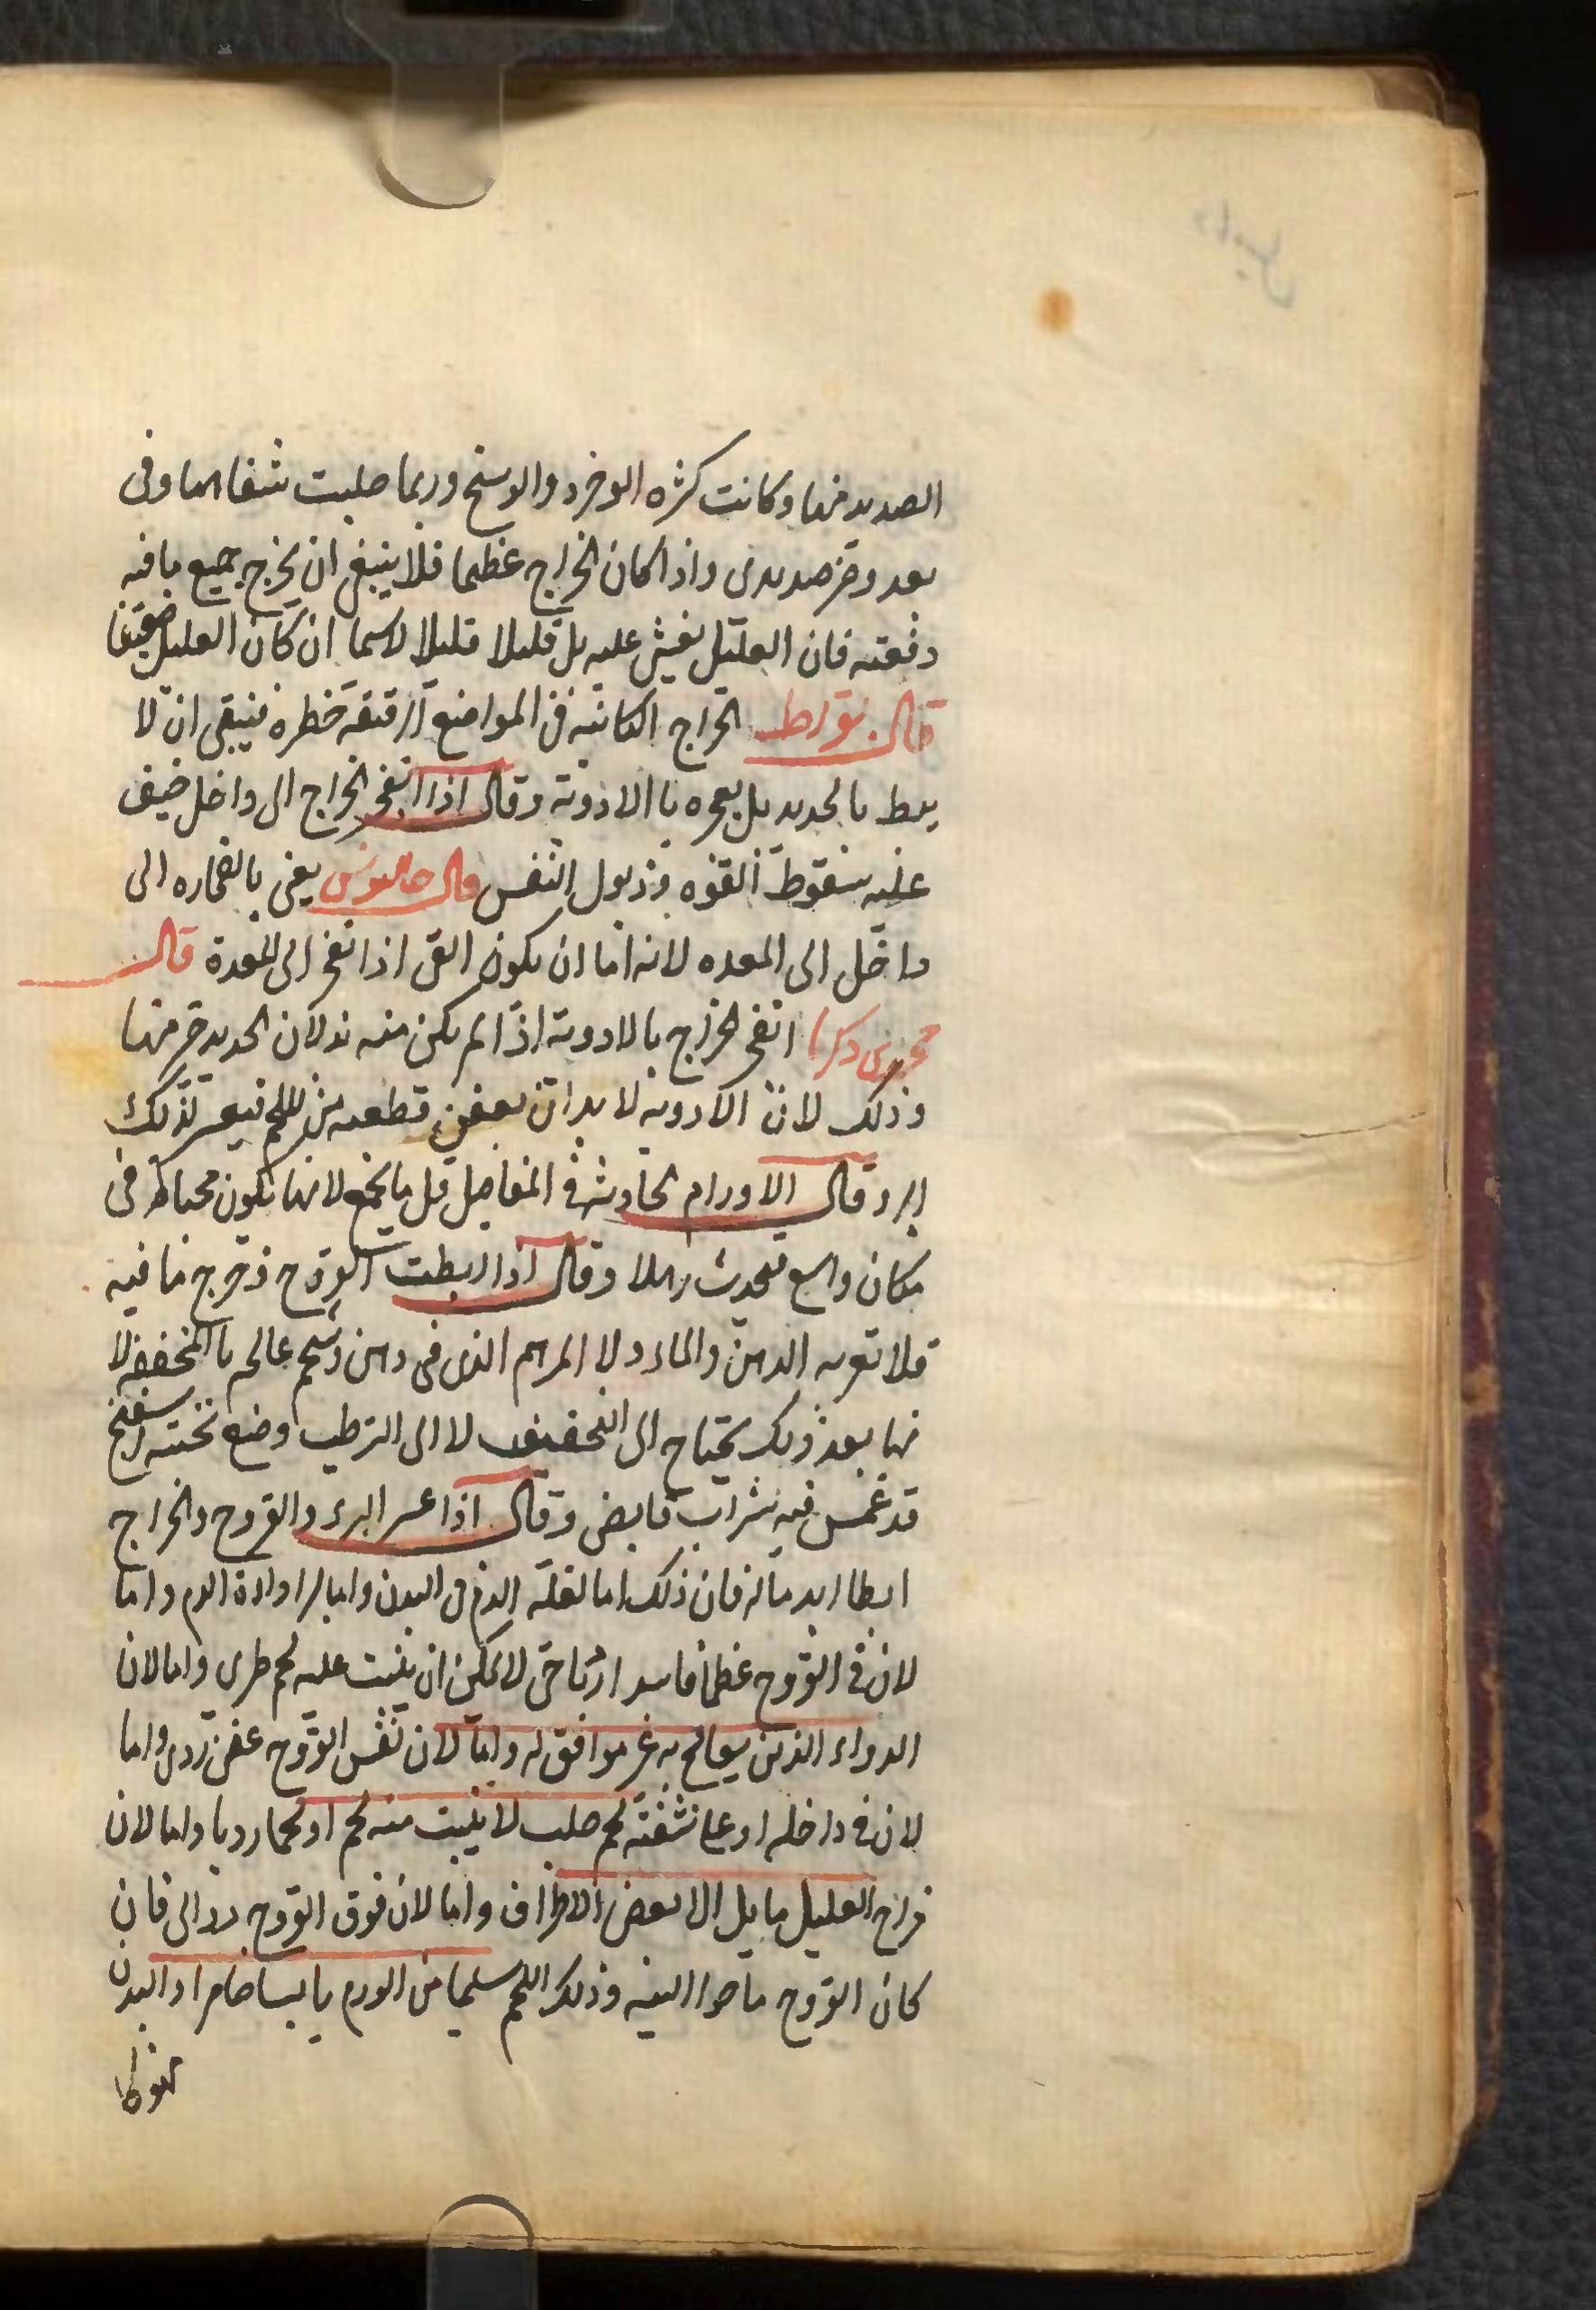 الصديد منها وكانت كثره الوضر والوسخ وربما صلبت شفاهها وفى
بعد وضر صديدى واذا كان الخراج عظيما فلا ينبغى ان يخرج جميع ما فيه
دفعته فان العليل يغشى عليه بل قليلا قليلا لاسيما ان كان العليل ضعيفا
قال بقراط الخراج الكائنه فى المواضع الرقيقه خطره فينبغى ان لا
يبط بالحديد بل يفجره با الادوية وقال اذا انفجر الخراج الى داخل خيف
عليه سقوط القوه وذبول النفس قال جالينوس يعنى بانفجاره الى
داخل الى المعده لانه اما ان يكون القى اذا انفجر الى المعدة قال
محمد بن زكريا انفجر الخراج بالادوية اذا لم يكن منه بد لان الحديد خير منها
وذلك لان الادويه لا بد ان يعفن قطعه من اللحم فيعسر لذلك
البر وقال الاورام الحادثه فى المفاصل قل ما يجمع لانها تكون محباطه فى
مكان واسع فيحدث وقال اذا بطت القروح وخرج ما فيه
فلا تقربه الدهن والماء ولا المرهم الذى فى دهن وشحم عالجه بالمجففه لا
نها بعد ذلك يحتاج الى التجفيف لا الى الترطيب وضع تحته اسفنج
قد غمس فيه شراب قابض وقال اذا عسر البرء والقروح والخراج
ابطا اندماله فان ذلك اما لقلة الدم فى البدن واما لرداوة الدم واما
لان فى القروح عظما فاسدا حتى لا يمكن ان ينبت عليه لحم طرى واما لان
الدواء الذى يعالج به غير موافق له واما لان نفس القروح عفن ردى واما
لان فى داخله او على شفته لحم صلب لا ينبت منه لحم او لحما رديا واما لان
مزاج العليل مايل الا بعض الاطراف واما لان فوق القروح دوالى فان
كان القروح ما حوا اليه وذلك اللحم سليما من الورم يابسا ضامرا والبدن